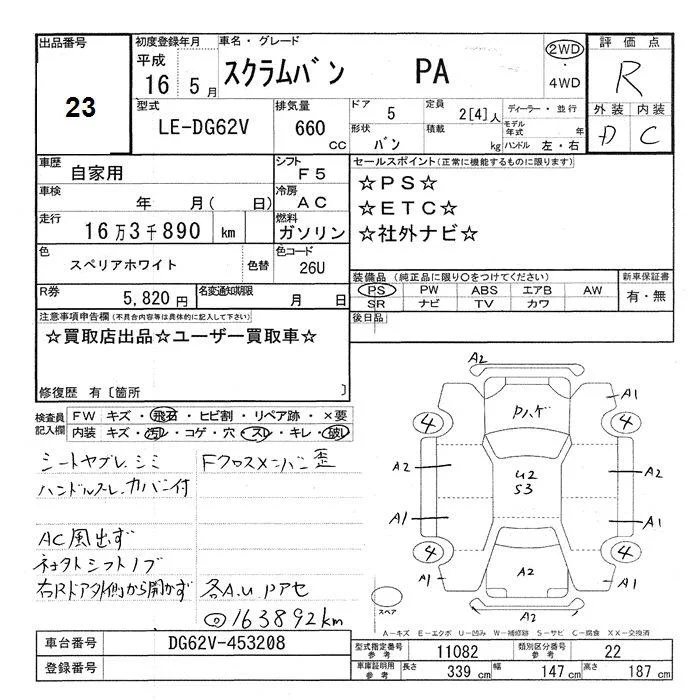 出品番号 初度登録年月 車名・グレード 評価点
23
平成 16 5月 スクラムバン PA 2WD ・ 4WD R
型式 排気量 ドア 5 定員 2[4]人 ディーラー・並行 外装 内装
LE-DG62V 660 CC 形状 バン 積載 kg モデル年式 年 ハンドル 左・右 D C
車歴 自家用 シフト F5 セールスポイント(正常に機能するものに限ります)
車検 年 月( 日) 冷房 AC ☆PS☆
☆ETC☆
走行 16万3千890 km 燃料 ガソリン ☆社外ナビ☆
色 スペリアホワイト 色替 色コード 26U
装備品 (純正品に限り○をつけてください) 新車保証書
R券 5,820円 名変通知期限 月 日 PS PW ABS エアB AW 有・無
SR ナビ TV カワ
注意事項申告欄(不具合内容等は具体的に記入して下さい) 後日品
☆買取店出品☆ユーザー買取車☆
修復歴 有〔箇所 〕
検査員記入欄 FW キズ・飛石・ヒビ割・リペア跡・×要
内装 キズ・汚レ・コゲ・穴・スレ・キレ・破レ
シートヤブレ.シミ Fクロスメンバン歪
ハンドルスレ.カバン付
AC風出ず
ネセ外シフトノブ
右Rドア外側から開かず 各A.U Pアセ
◎163892km
A2
A1 A1
4 Pハゲ 4
A2 U2 S3 A2
A1 A1
4 4
A1 A2 A1
A2
スペア
A-キズ E-エクボ U-凹み W-補修跡 S-サビ C-腐食 XX-交換済
車台番号 DG62V-453208 型式指定番号 参考 11082 類別区分番号 参考 22
登録番号 車庫証明用 参考 長さ 339 cm 幅 147 cm 高さ 187 cm